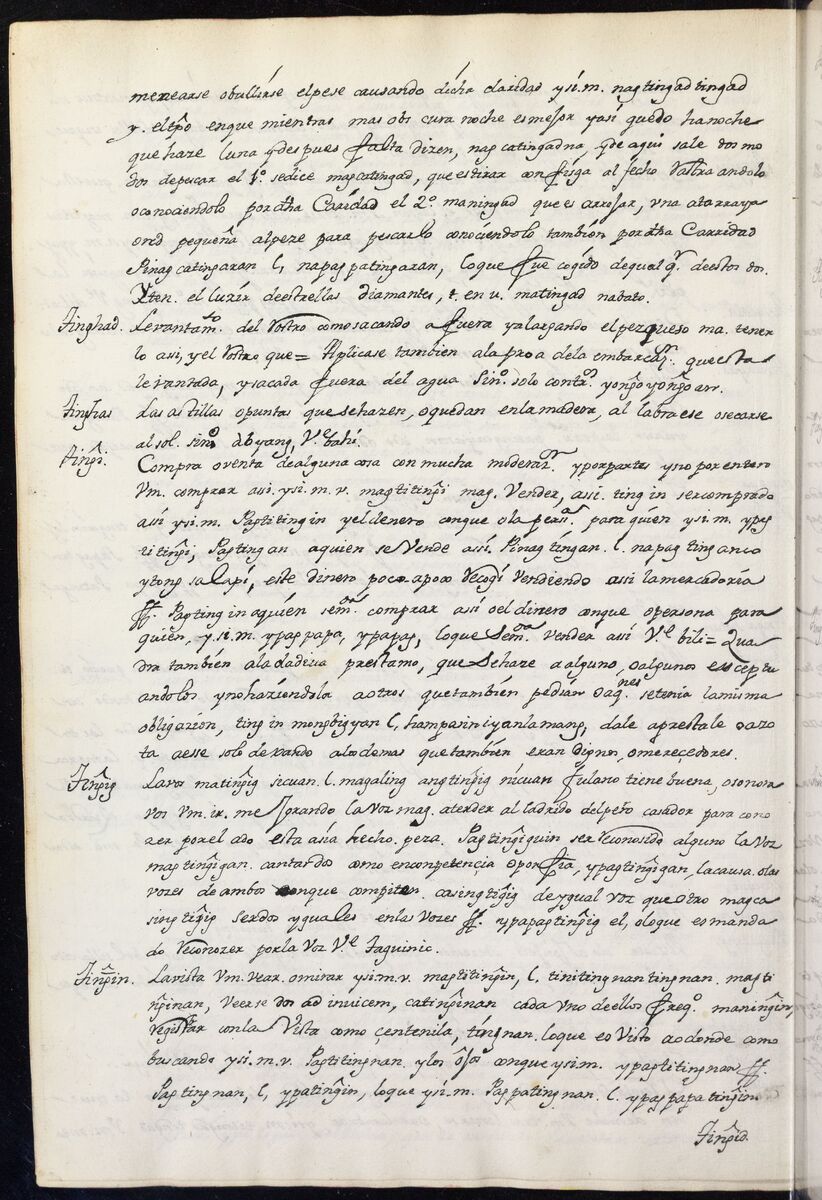 menearse o bullirse el pese causando dicha claridad y si. m. nagtingadtingad
y. el tpõ en que mientras mas obscura noche es mejor y asi quedo ha noche
que haze luna q̃ despues falta dizen, nagcatingadna, q̃ de aqui sale dos mo
dos de pescar el 1.º se dice magcatingad, que es tirar con fisga al
o conociendolo por dha Caridad el 2.º maningad que es arrojar, una atarraya
o red pequeña al peze para pescarlo conociendolo tambien por dha Carridad
Pinagcatingaran l, napagpatingaran, lo que fue cogido de qual q.r de estos dos.
Yten. el luzir de estrellas diamantes, t. en u. matingad nabato.
Tinghad. Levantam.to del Rostro como sacando a fuera y alargando el pezqueso ma. tener
lo asi, y el Rostro que = Aplicase tambien a la proa de la embarcaz.n que esta
levantada, y sacada fuera del agua Sin.º solo contr.º
Tinghas Las astillas o puntas que se hazen, o quedan en la madera, al labrarse o secarse
al sol. sin.º abyang, V.e bahi.
Tingi. Compra o venta de alguna cosa con mucha moderaz.n y por partes y no por entero
Vm. comprar asi. y si. m. v. magtitingi mag. Vender, assi. tingin ser comprado
asi y si. m. Pagtitingin y el denero con que o la pers.a para quien y si. m. ypag
titingi, Pagtingan a quien se Vende assi. Pinagtingan. l. napagtinganco
ytong salapi, este dinero poco apoco Recogi vendiendo assi la mercadoria
ff. Pagtingin a quien sem.a comprar assi o el dinero con que o persona para
quien, y si. m. ypagpapa, ypapag, lo que Sem.a vender asi V.e bili = Qua
dra tambien a la dadiva prestamo, que se haze a alguno, o algunos exceptu
andolos y no haziendola a otros que tambien pedian o a q.nes se tenia la misma
obligazion, tingin mongbigyan l, hampasin iyan lamang, dale a prestale o azo
ta a esse solo dexando a los demas que tambien eran dignos, o mereçedores.
Tingig La voz matingig sicuan. l. magaling angtingig nicuan fulano tiene buena, o sonora
voz Vm. ir. mejorando la voz mag. atender al ladrido del perro casador para cono
zer por el ado esta asi a hecho peza. Pagtingiguin ser Reconosido alguno la voz
magtingigan. cantar dos como en conpetencia o porfia, ypagtingigan, la causa. o las
vozes de ambos conque compiten. casingtigig de ygual voz que otro magca
singtigig ser dos yguales en las vozes ff. ypapagtingig el, o lo que es manda
do Reconozer por la Voz V.e Taguinic.
Tingin. La vista Vm. vear. o mirar y si. m. v. magtitingin, l. tinitingnantingnan. magti
nginan, veerse dos ad invicem, catinginan cada uno de ellos freq.º maningin,
registrar con la Vista como çentenila, tingnan. lo que es Visto a o donde como
buscando y si. m. v. Pagtitingnan y los ojos con que y si. m. ypagtitingnan ff.
Pagtingnan, l, ypatingin, lo que y si. m. Pagpatingnan. l. ypagpapatingin
Tingid.